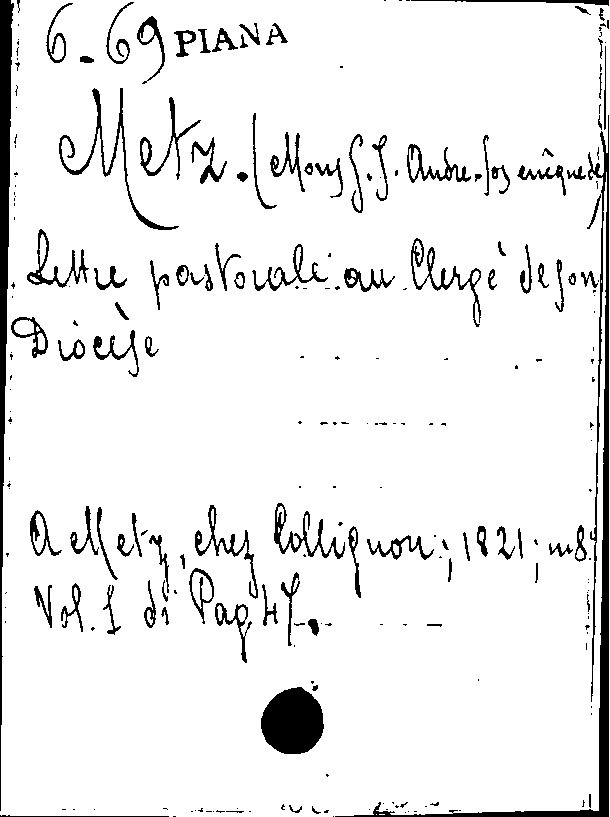 6-69 PIANA
Metz. (Mons G. J. André-Jos evêque de)
Lettre pastorale au Clergé de son
Diocèse
A Metz, chez Collignon; 1821; in 8.°
Vol. 1 di Pag 47.